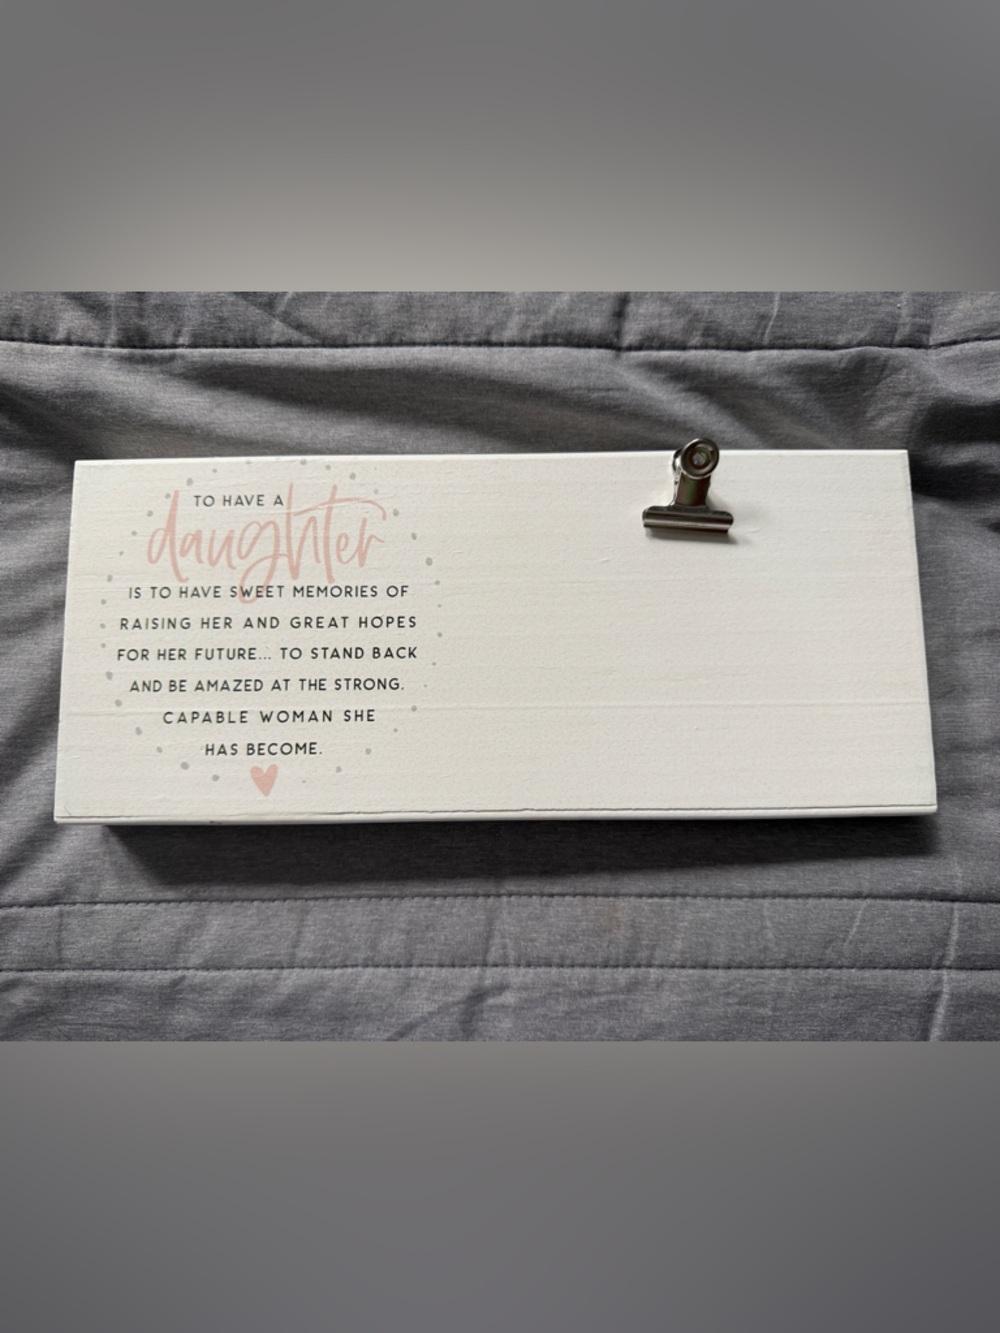 TO HAVE A
daughter
IS TO HAVE SWEET MEMORIES OF
RAISING HER AND GREAT HOPES
FOR HER FUTURE... TO STAND BACK
AND BE AMAZED AT THE STRONG.
CAPABLE WOMAN SHE
HAS BECOME.